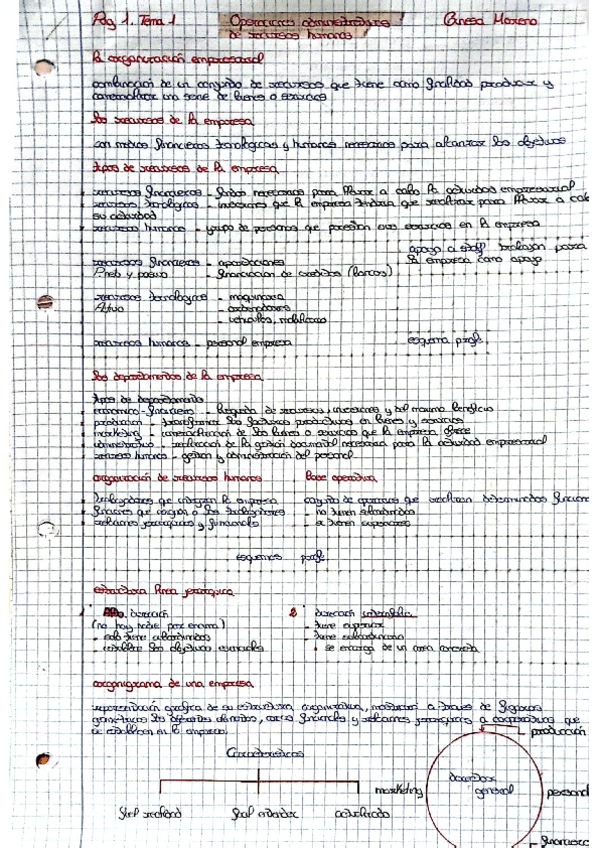 Pág 1. Tema 1
Operaciones administrativas
de recursos humanos
Moreno
la organización empresarial
combinación de un conjunto de recursos que tiene como finalidad producir y
comercializar una serie de bienes o servicios
los recursos de la empresa
son medios financieros tecnológicos y humanos necesarios para alcanzar los objetivos
tipos de recursos de la empresa
recursos financieros - fondos necesarios para llevar a cabo la actividad empresarial
recursos tecnológicos - inversiones que la empresa tendría que realizar para llevar a cabo
su actividad
recursos humanos - grupo de personas que prestan sus servicios en la empresa
apoyo o staff trabajan para
la empresa como apoyo
recursos financieros - aportaciones
P.neto y pasivo - financiación de creditos (bancos)
recursos tecnologicos - maquinaria
Activo - ordenadores
- vehiculos, mobiliario
recursos humanos - personal empresa
esquema profe.
los departamentos de la empresa
tipos de departamento
economico-financiero - busqueda de recursos, inversiones y del maximo beneficio
produccion - transformar los factores productivos en bienes y servicios
marketing - comercialización de los bienes o servicios que la empresa ofrece
administrativo - realización de la gestión documental necesaria para la actividad empresarial
recursos humanos - gestion y administración del personal
organización de recursos humanos
Base operativa
trabajadores que integran la empresa
conjunto de operarios que realizan determinadas funciones
funciones que asignan a los trabajadores
- no tienen subordinados
relaciones jerarquicas y funcionales
- si tienen superiores
esquemas profe.
estructura linea jerarquica
dirección
2 dirección intermedia
(no hay nadie por encima)
- tiene superior
- solo tiene subordinados
- tiene subordinados
- establece los objetivos
- se encarga de un area concreta
organigrama de una empresa
representación grafica de su estructura organizativa, mostrando a traves de figuras
geométricas los diferentes
se establecen en la empresa
producción
Características
marketing
director
general
personal
Staff
actualizado
financiero